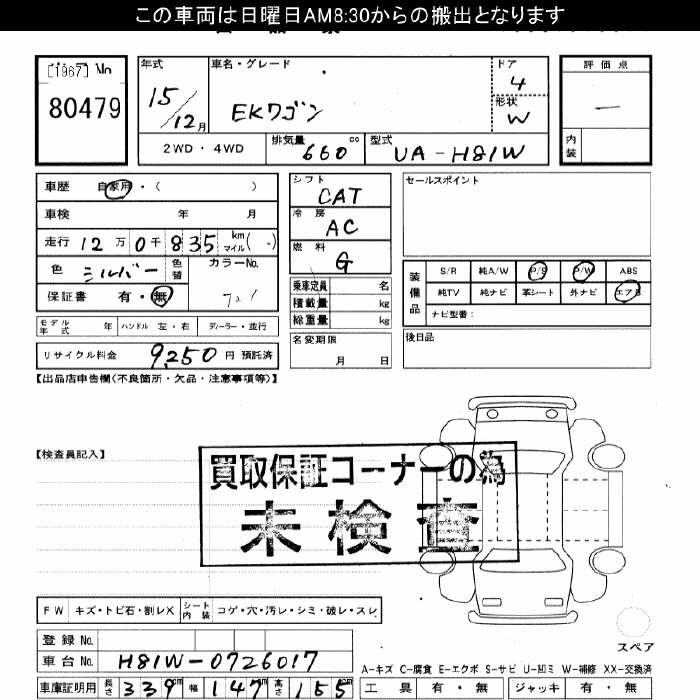 この車両は日曜日AM8:30からの搬出となります
[1967] No
80479
年式 車名・グレード ドア 評価点
15/12月 EKワゴン 4 —
形状 W
2WD・4WD 排気量 660 cc 型式 UA-H81W 内装
車歴 自家用・( ) シフト CAT セールスポイント
車検 年 月 冷房 AC
走行 12万0千835 km マイル( ) 燃料 G
色 シルバー 色替 カラーNo.
保証書 有・無
乗車定員 名
積載量 kg
総重量 kg
装備品 S/R 純A/W P/S P/W ABS
純TV 純ナビ 革シート 外ナビ エアB
ナビ型番:
モデル年式 年 ハンドル 左・右 ディーラー・並行 名変期限 月 日 後日品
リサイクル料金 9,250 円 預託済
【出品店申告欄(不良箇所・欠品・注意事項等)】
【検査員記入】
買取保証コーナーの為
未検査
FW キズ・トビ石・割レX シート内装 コゲ・穴・汚レ・シミ・破レ・スレ
スペア
登録No.
車台No. H81W-0726017
A-キズ C-腐食 E-エクボ S-サビ U-凹ミ W-補修 XX-交換済
車庫証明用 長さ 339cm 幅 147cm 高さ 155cm 工具 有・無 ジャッキ 有・無